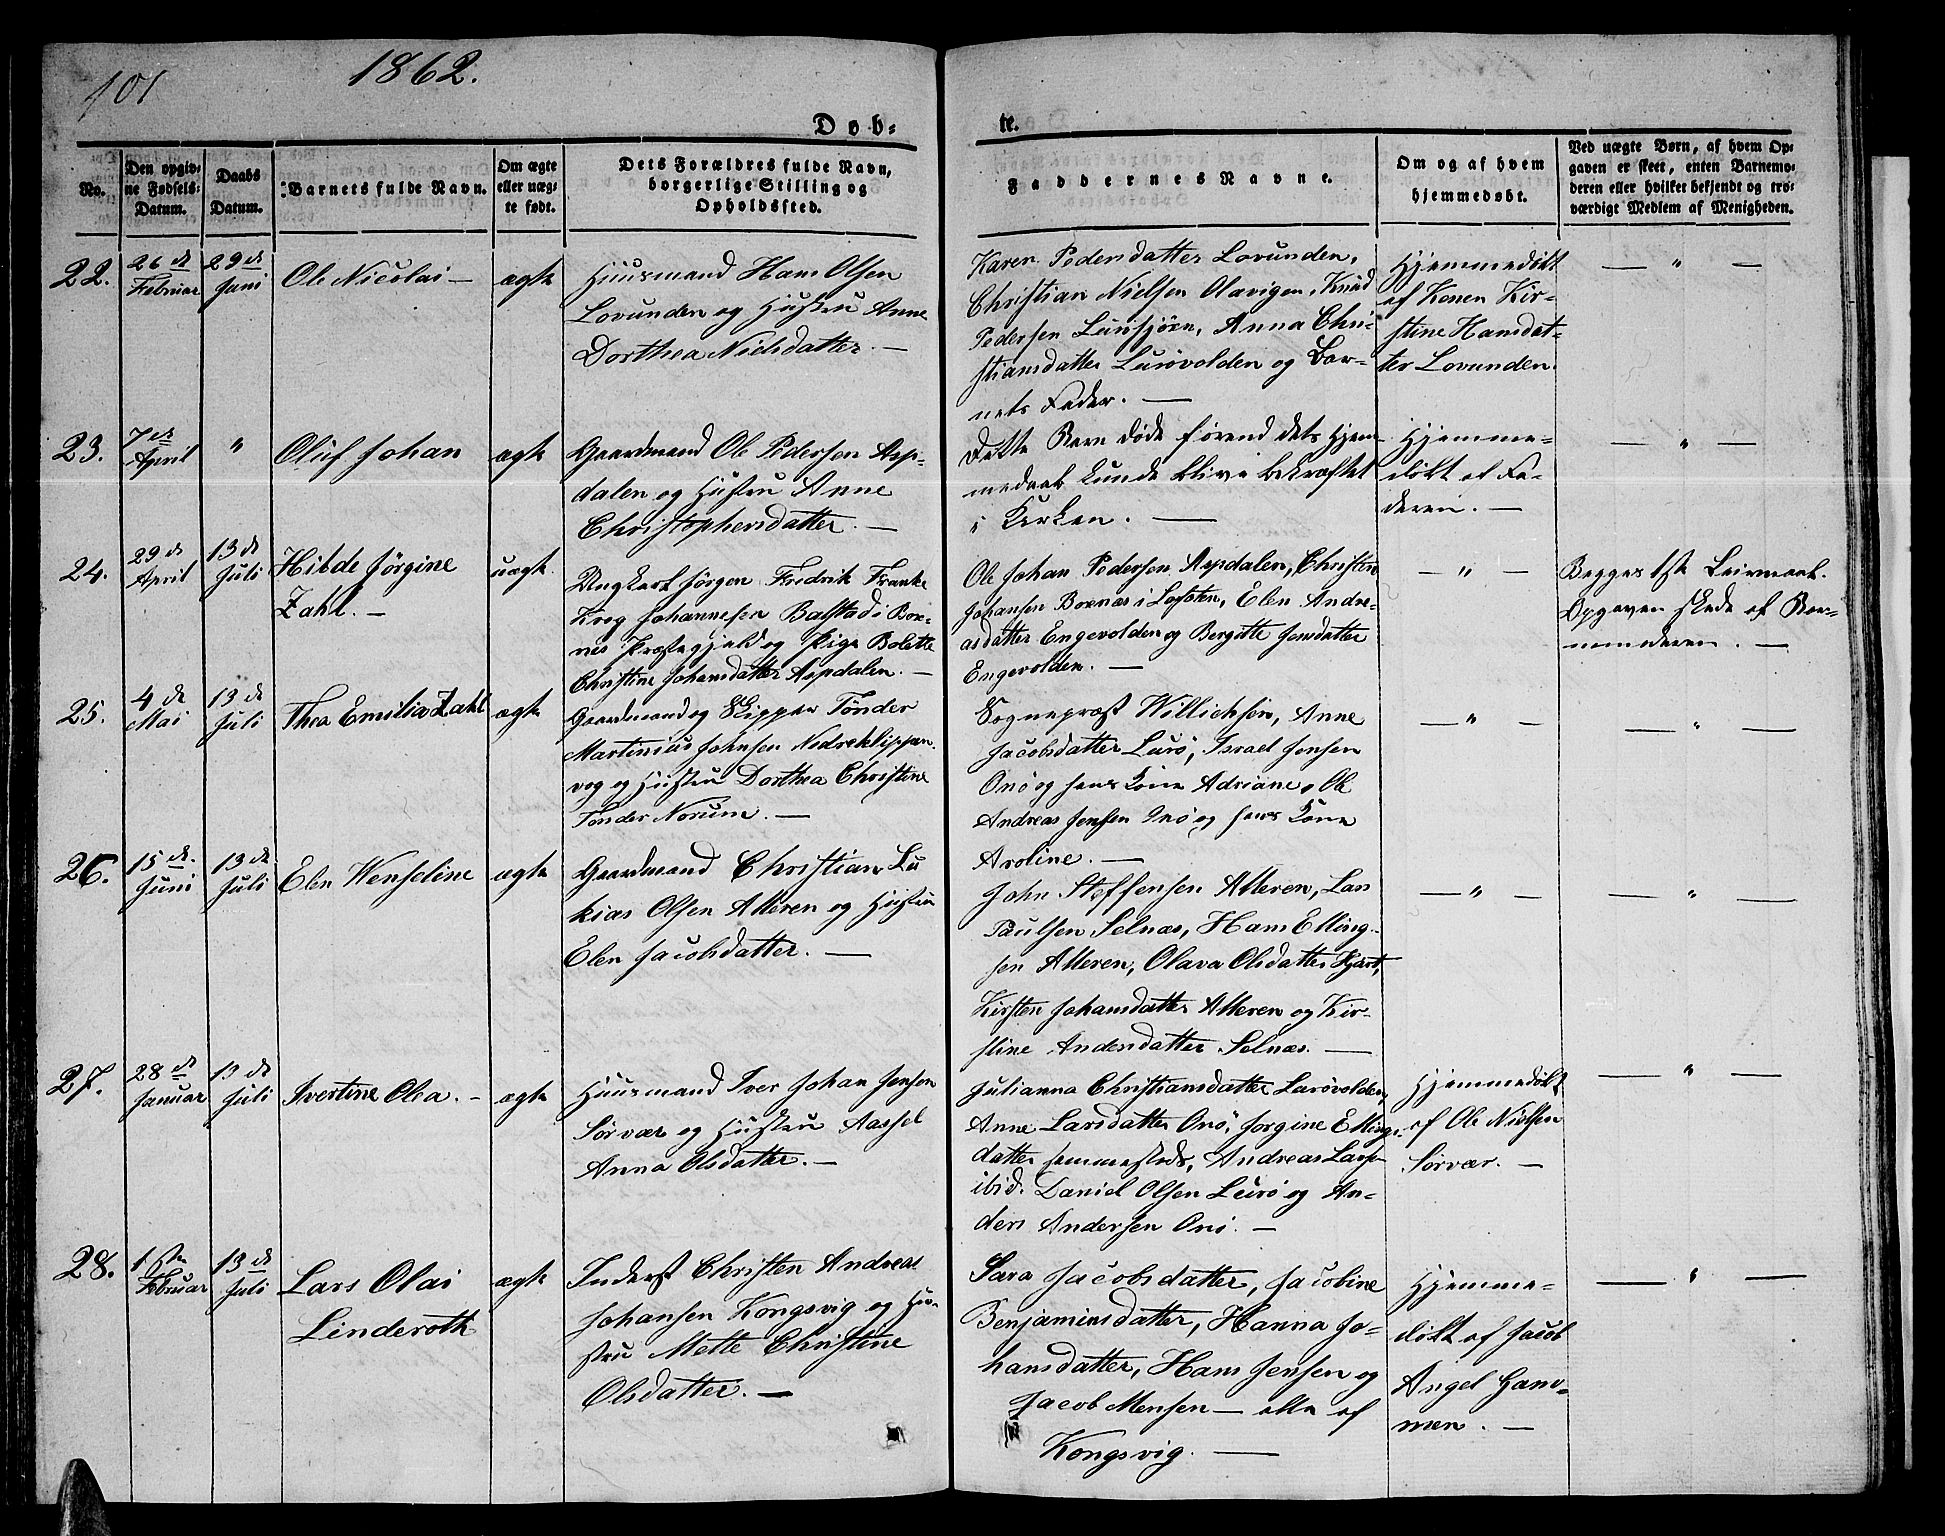 101
1862.
Døb-
te.
No.
Den opgiv-
ne Fødsels-
Datum.
Daabs
Datum.
Barnets fulde Navn.
Om ægte
eller uæg-
te født.
Dets Forældres fulde Navn,
borgerlige Stilling og
Opholdssted.
Faddernes Navne.
Om og af hvem
hjemmedøbt.
Ved uægte Børn, af hvem Op-
gaven er skeet, enten Barnemo-
deren eller hvilket bekjendt og tro-
værdige Medlem af Menigheden.
22.
26 de
Februar
29 de
Juni
Ole Nicolai —
ægte
Huusmand Hans Olsen
Lovunden og Hustru Anne
Dorthea Nielsdatter. —
Karen Pedersdatter Lovunden,
Christian Nielsen Olavigen, Knud
Pedersen, Anna Chri-
stiansdatter Lurøvolden og Bar-
nets Fader. —
Hjemmedøbt
af Konen Kir-
stine Hansdat-
ter Lovunden.
— " —
23.
7de
April
"
Oluf Johan
ægte
Gaardmand Ole Pedersen Asp-
dalen og Hustru Anne
Christophersdatter. —
Dette Barn døde førend dets Hjem-
medaab kunde blive bekræftet
i Kirken. —
Hjemme-
døbt af Fa-
deren. —
— " —
24.
29 de
April
13 de
Juli
Hilde Jörgine
Zahl. —
uægte
Ungkarl Jörgen Fredrik Franke
Krog Johannesen Balstad i Box-
nes Præstegjeld og Pige Bolette
Christine Johansdatter Aspdalen. —
Ole Johan Pedersen Aspdalen, Christen
Johansen Boxnæs i Lofoten, Elen Andre-
asdatter Engevolden og Bergitte Jensdatter
Engevolden. —
— " —
Begges 1ste Leiermaal.
Opgaven skede af Bar-
nemoderen. —
25.
4 de
Mai
13 de
Juli
Thea Emilia Zahl
ægte
Gaardmand og Skipper Tönder
Martinius Johnsen Nedreklippan-
vog og Hustru Dorthea Christine
Tönder Norum. —
Sognepræst Willichsen, Anne
Jacobsdatter Lurö, Israel Jensen
Onö og hans Kone Adriane, Ole
Andreas Jensen Onö og hans Kone
Aroline. —
— " —
— " —
26.
15 de
Juni
13 de
Juli
Elen Wenseline
ægte
Gaardmand Christian Lu
kias Olsen Alteren og Hustru
Elen Jacobsdatter. —
John Steffensen Alteren, Lars
Paulsen Selnæs, Hans Elling-
sen Alteren, Olava Olsdatter Hjart,
Kirsten Johansdatter Alteren og Kir-
stine Andersdatter Selnæs. —
— " —
— " —
27.
28 de
Januar
13 de
Juli
Ivertine Olea. —
ægte
Huusmand Iver Johan Jensen
Sörvær og Hustru Aassel
Anna Olsdatter. —
Julianna Christiansdatter Lurøvolden,
Anne Larsdatter Onö, Jorgine Ellings-
datter sammesteds, Andreas Larsen
ibid. Daniel Olsen Lurö og An-
ders Andersen Onö. —
Hjemmedøbt
af Ole Nielsen
Sörvær. —
— " —
28.
1ste
Februar
13 de
Juli
Lars Olai
Linderoth
ægte
Inderst Christen Andreas
Johansen Kongsvig og Hu-
stru Mette Christine
Olsdatter. —
Sara Jacobsdatter, Jacobine
Benjaminsdatter, Hanna Jo-
hansdatter, Hans Jensen og
Jacob Mensen — alle af
Kongsvig. —
Hjemme-
døbt af Jacob
Angel Ham-
men. —
— " —